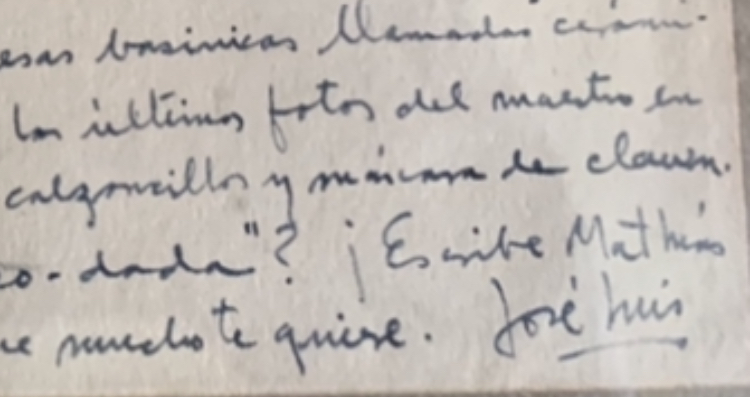 esas basinicas llamadas cerámi-
las últimas fotos del maestro en
calzoncillos y máscara de clown.
o-dada"? ¡Escribe Mathías
ue mucho te quiere. José Luis